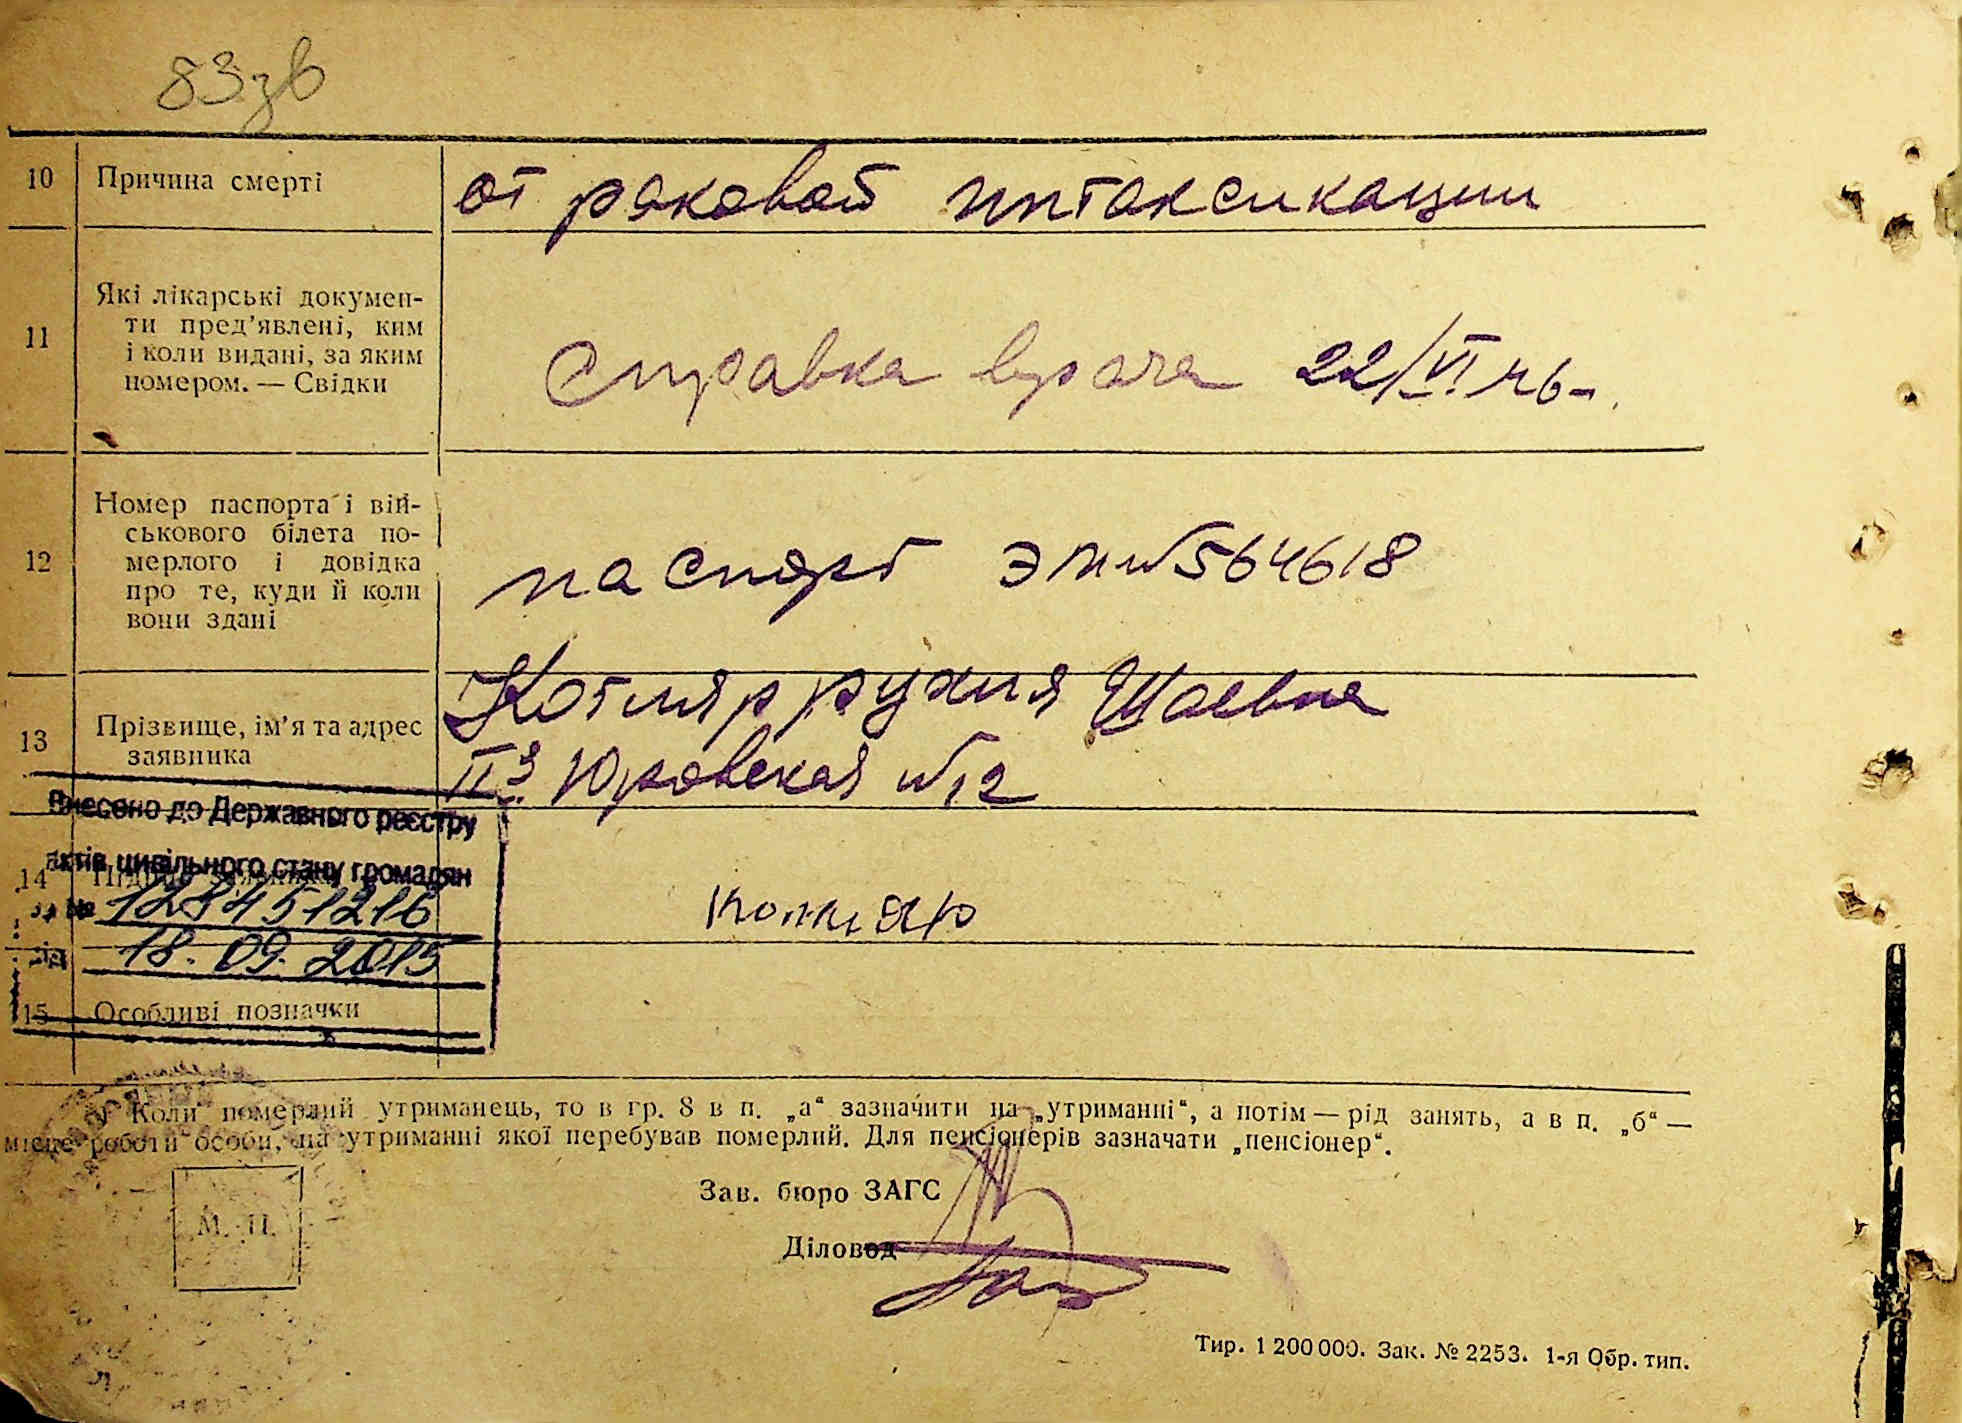 83зв
10 Причина смерті от раковой интаксикации
11 Які лікарські документи
Які лікарські докумен-
ти пред’явлені, ким
і коли видані, за яким
номером. — Свідки
справка врача 22/VI 46-
12 Номер паспорта і вій-
ськового білета по-
мерлого і довідка
про те, куди й коли
вони здані
паспорт № 564618
13 Прізвище, ім’я та адрес
заявника
Котляр рухля Шаевна
II я Юровская №12
Внесено до Державного реєстру
актів цивільного стану громадян
за № 128451216
від 18.09.2015
14
15 Особливі позначки
Коли померлий утриманець, то в гр. 8 в п. „а“ зазначити на „утриманні“, а потім — рід занять, а в п. „б“ —
місце роботи особи, на утриманні якої перебував померлий. Для пенсіонерів зазначати „пенсіонер“.
М. П.
Зав. бюро ЗАГС
Діловод
Тир. 1 200 000. Зак. № 2253. 1-я Обр. тип.